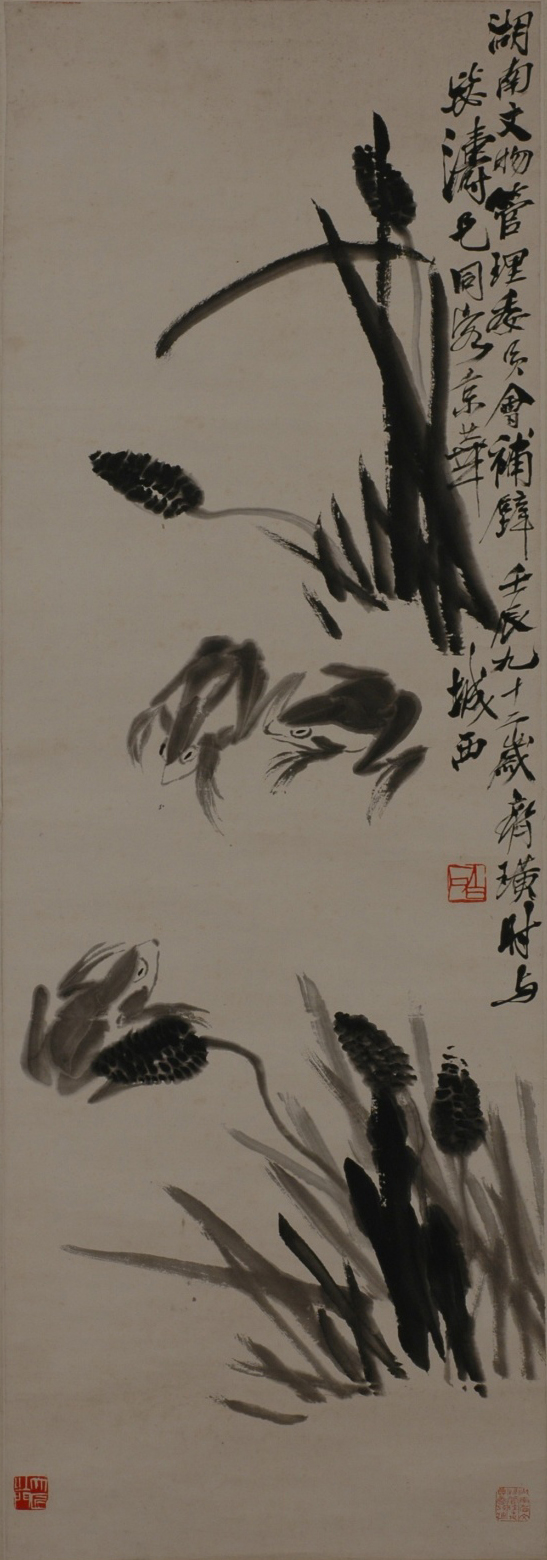 湖南文物管理委員會補壁壬辰九十二歲齊璜时与
悲濤兄同客京華城西